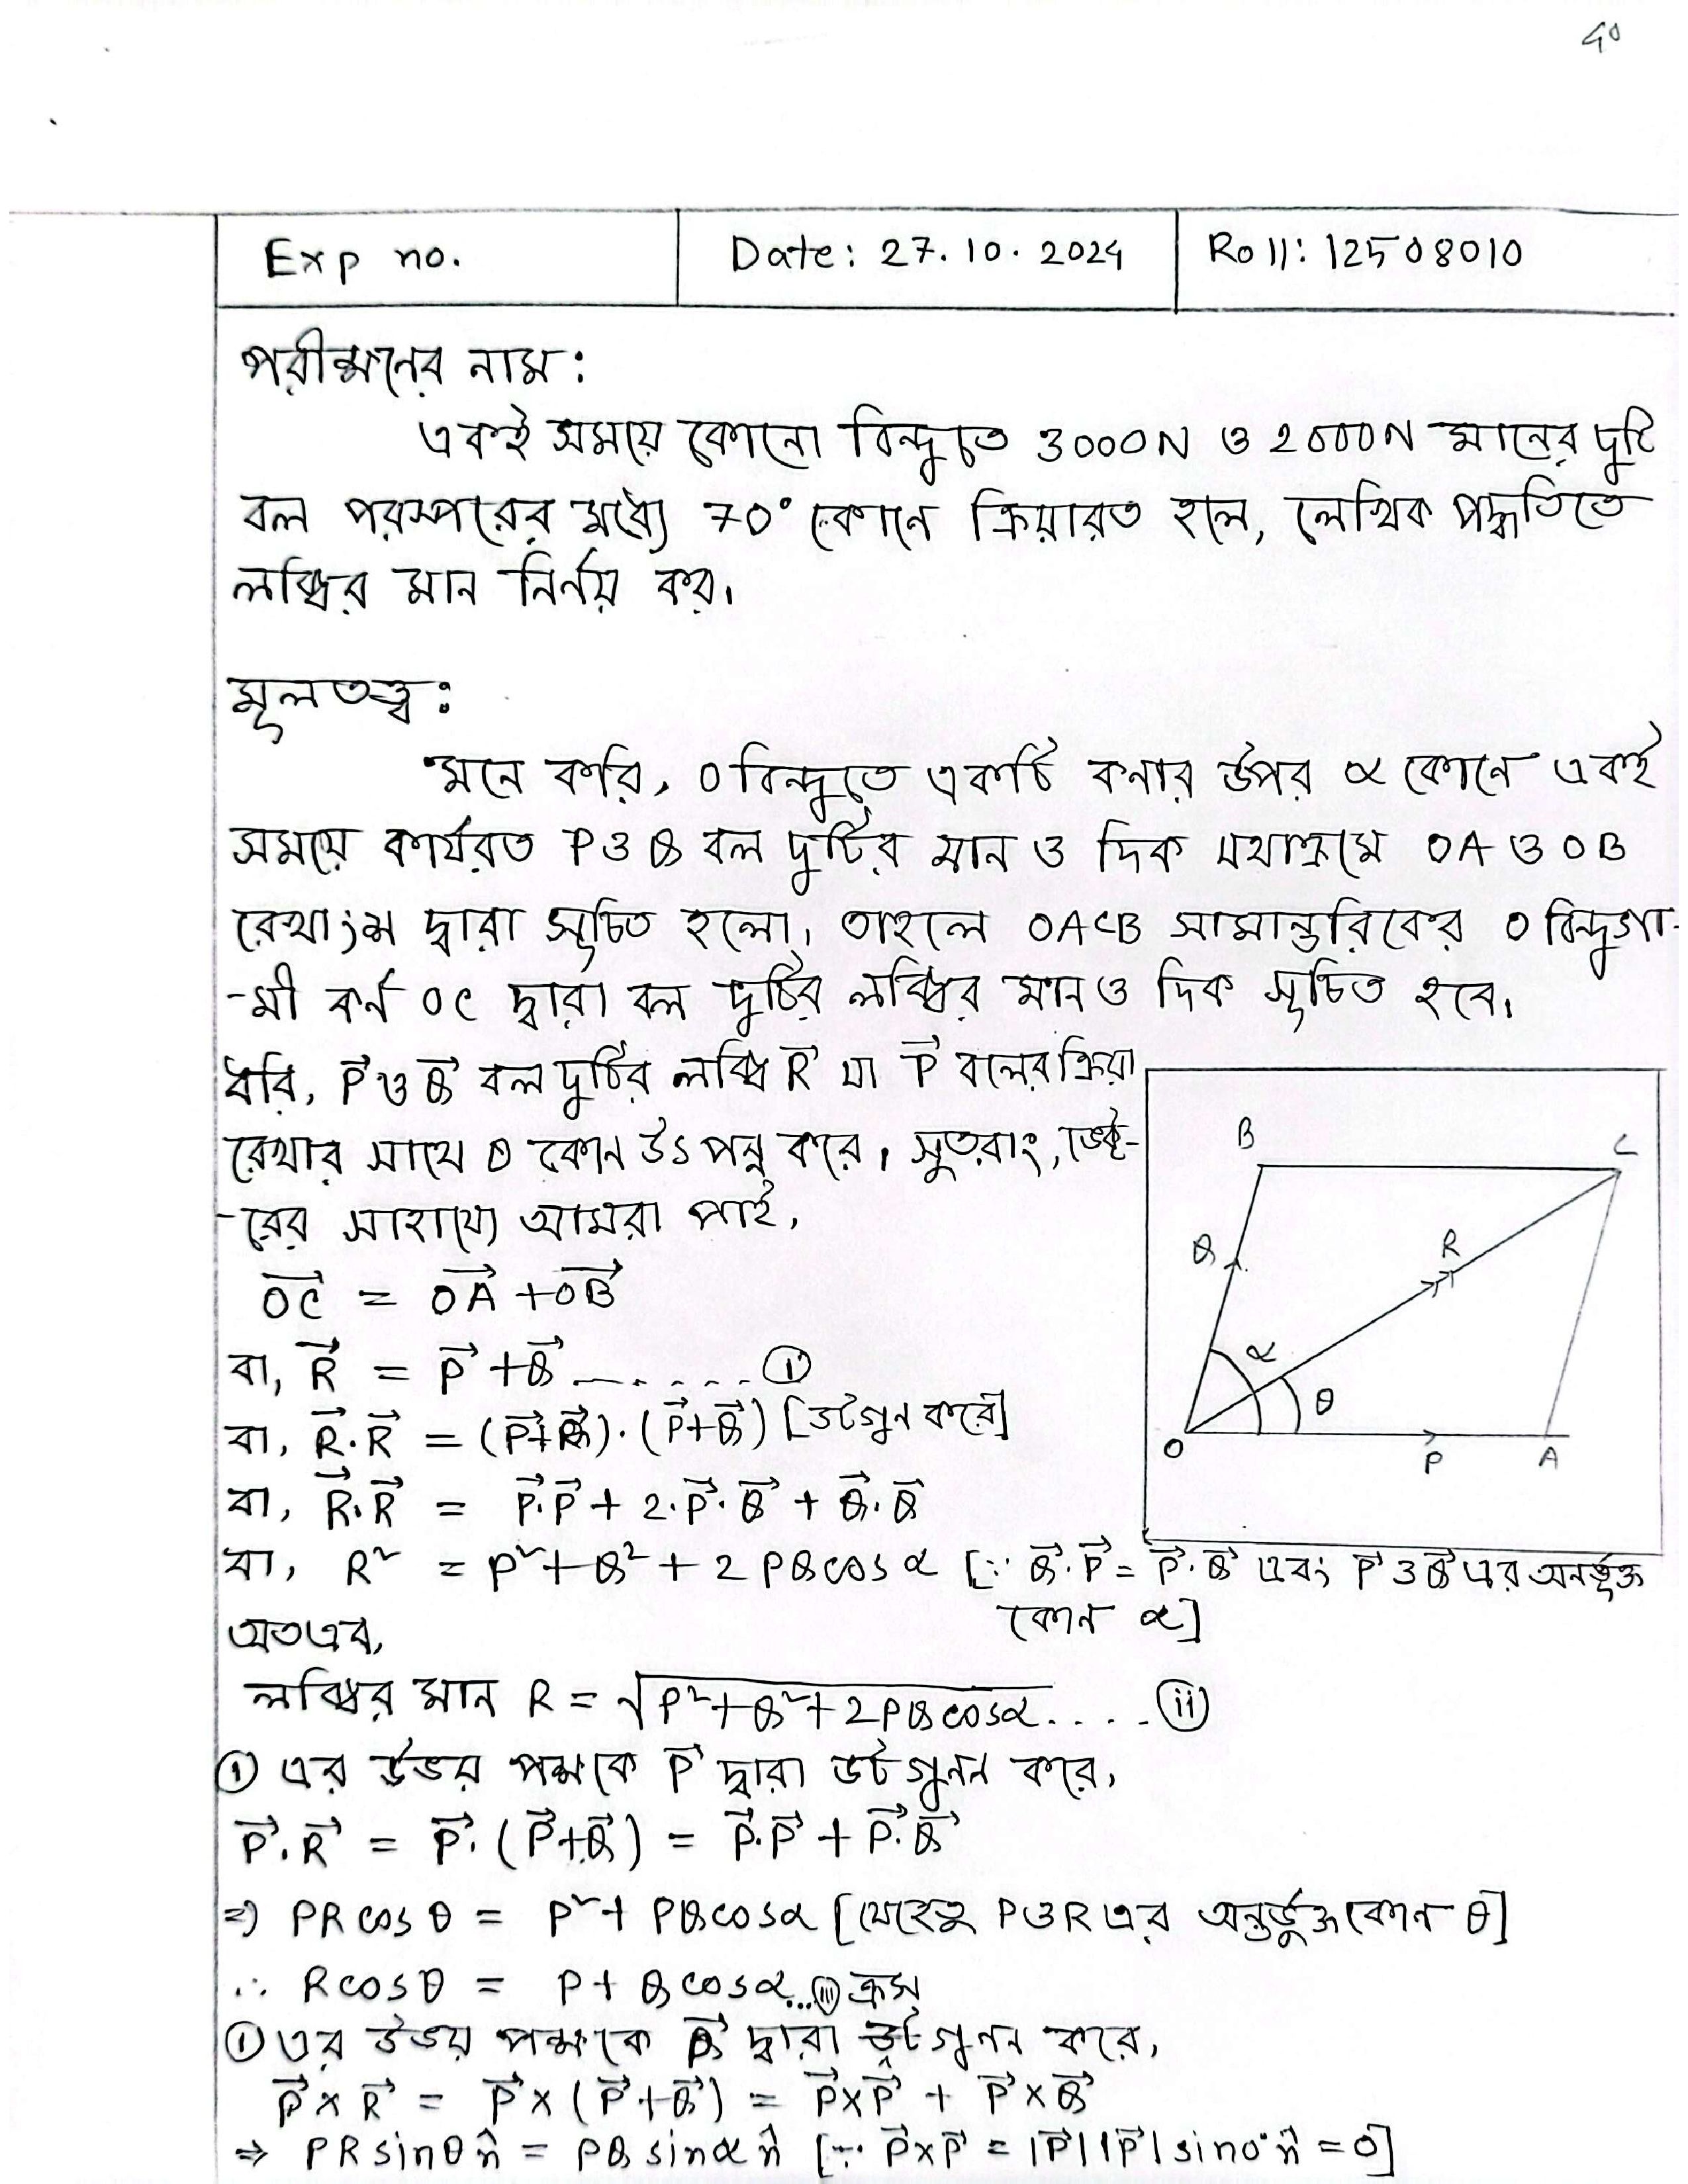 ৫০
Exp no.
Date: 27.10.2024
Roll: 12508010
পরীক্ষণের নাম:
একই সময়ে কোনো বিন্দুতে 3000N ও 2000N মানের দুটি
বল পরস্পরের মধ্যে 70° কোনে ক্রিয়ারত হলে, লেখিক পদ্ধতিতে
লব্ধির মান নির্নয় কর।
মূলতত্ত্ব:
মনে করি, O বিন্দুতে একটি কনার উপর α কোনে একই
সময়ে কার্যরত P ও Q বল দুটির মান ও দিক যথাক্রমে OA ও OB
রেখাংশ দ্বারা সূচিত হলো। তাহলে OACB সামান্তরিকের O বিন্দুগা-
-মী কর্ন OC দ্বারা বল দুটির লব্ধির মান ও দিক সূচিত হবে।
ধরি, P⃗ ও Q⃗ বল দুটির লব্ধি R⃗ যা P⃗ বলের ক্রিয়া
রেখার সাথে θ কোন উৎপন্ন করে। সুতরাং, ভেক্ট-
-রের সাহায্যে আমরা পাই,
OC⃗ = OA⃗ + OB⃗
বা, R⃗ = P⃗ + Q⃗ ........ (i)
বা, R⃗.R⃗ = (P⃗+Q⃗).(P⃗+Q⃗) [ডটগুন করে]
বা, R⃗.R⃗ = P⃗.P⃗ + 2.P⃗.Q⃗ + Q⃗.Q⃗
বা, R² = P² + Q² + 2PQcosα [∵ Q⃗.P⃗ = P⃗.Q⃗ এবং P⃗ ও Q⃗ এর অন্তর্ভুক্ত
কোন α]
B
C
Q
R
α
θ
O
P
A
অতএব,
লব্ধির মান R = √P²+Q²+2PQcosα .... (ii)
(i) এর উভয় পক্ষকে P⃗ দ্বারা ডট গুনন করে,
P⃗.R⃗ = P⃗.(P⃗+Q⃗) = P⃗.P⃗ + P⃗.Q⃗
⇒ PRcosθ = P² + PQcosα [যেহেতু P ও R এর অন্তর্ভুক্ত কোন θ]
∴ Rcosθ = P + Qcosα ... (iii)
ক্রস
(i) এর উভয় পক্ষকে P⃗ দ্বারা গুনন করে,
P⃗×R⃗ = P⃗×(P⃗+Q⃗) = P⃗×P⃗ + P⃗×Q⃗
⇒ PRsinθ n̂ = PQsinα n̂ [∵ P⃗×P⃗ = |P⃗||P⃗|sin0° n̂ = 0]